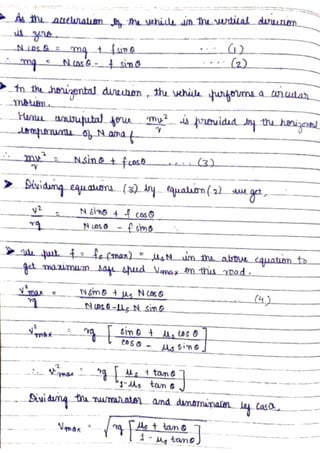 ➤ As the acceleration of the vehicle in the vertical direction
is zero.
N cos θ = mg + f sin θ .... (1)
∴ mg = N cos θ - f sin θ .... (2)
➤ In the horizontal direction, the vehicle performs a circular
motion.
Hence centripetal force mv²/r is provided by the horizontal
components of N and f
∴ mv²/r = N sin θ + f cos θ .... (3)
➤ Dividing equations (3) by equation (2) we get,
v²/rg = N sin θ + f cos θ / N cos θ - f sin θ
➤ We put f = fs (max) = μs N in the above equation to
get maximum safe speed Vmax on this road.
v²max/rg = N sin θ + μs N cos θ / N cos θ - μs N sin θ .... (4)
v²max = rg [ sin θ + μs cos θ / cos θ - μs sin θ ]
∴ v²max = rg [ μs + tan θ / 1 - μs tan θ ]
Dividing the numerator and denominator by cos θ,
Vmax = √rg [ μs + tan θ / 1 - μs tan θ ]